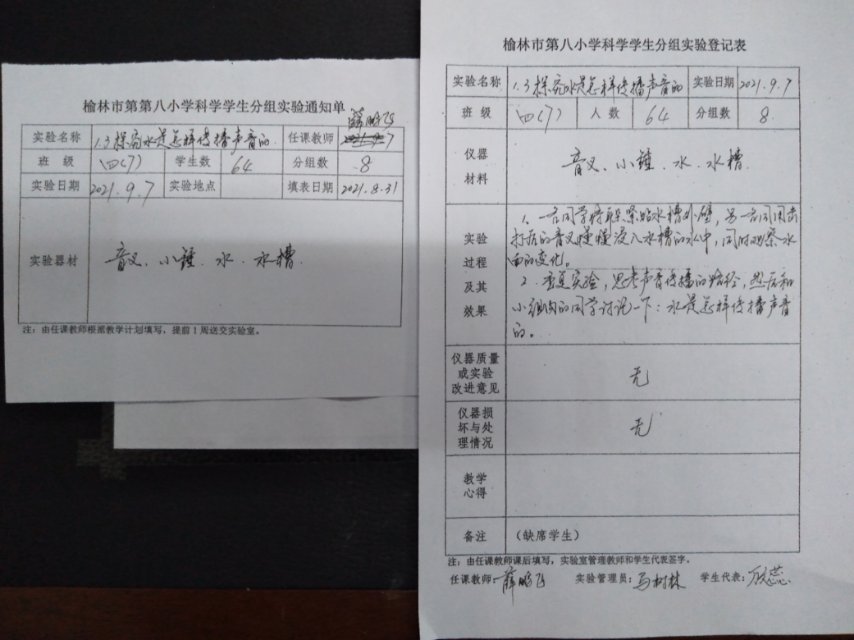 榆林市第第八小学科学学生分组实验通知单
薛鹏飞
实验名称 1.3探究水是怎样传播声音的 任课教师
班 级 四(7) 学生数 64 分组数 8
实验日期 2021.9.7 实验地点 填表日期 2021.8.31
实验器材 音叉、小锤、水、水槽.
注:由任课教师根据教学计划填写,提前1周送交实验室。
榆林市第八小学科学学生分组实验登记表
实验名称 1.3探究水是怎样传播声音的 实验日期 2021.9.7
班 级 四(7) 人 数 64 分组数 8
仪器
材料
音叉、小锤、水、水槽.
实验
过程
及其
效果
1、一名同学将耳朵紧贴水槽外壁,另一名同学用击
打后的音叉慢慢浸入水槽的水中,同时观察水
面的变化。
2.重复实验,思考声音传播的路径,然后和
小组内的同学讨论一下:水是怎样传播声音
的。
仪器质量
或实验
改进意见
无
仪器损
坏与处
理情况
无
教学
心得
备注 (缺席学生)
注:由任课教师课后填写,实验室管理教师和学生代表签字。
任课教师:薛鹏飞 实验管理员:马树林 学生代表: